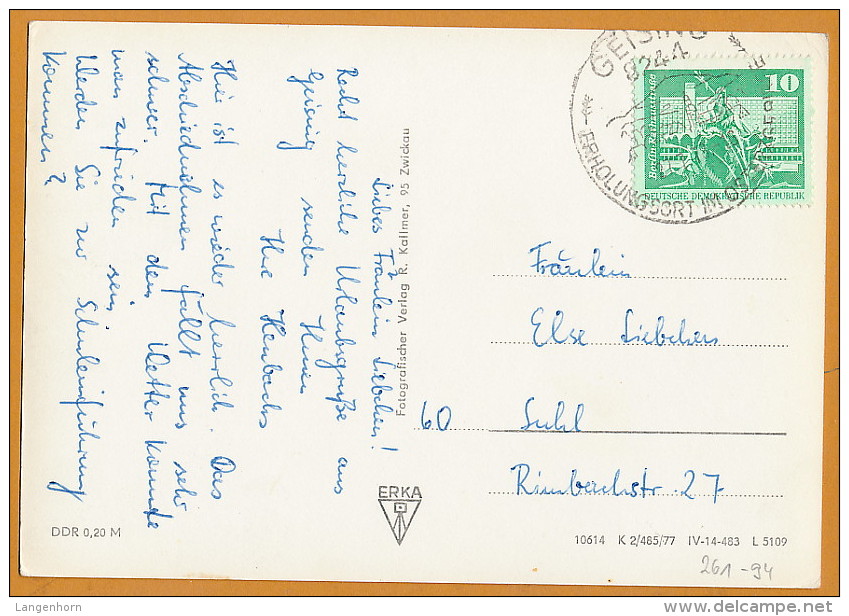 Liebes Fräulein Liebchen!
Recht herzliche Urlaubsgrüße aus
Geising senden Ihnen
Ihre Henbachs
Hier ist es wieder herrlich. Das
Abschiednehmen fällt uns sehr
schwer. Mit dem Wetter konnte
man zufrieden sein.
Werden Sie zur Schuleinführung
kommen?
Fotografischer Verlag R. Kallmer, 95 Zwickau
GEISING
8244
ERHOLUNGSORT IM OST
10
Berlin Rathausstraße
DEUTSCHE DEMOKRATISCHE REPUBLIK
Fräulein
Else Liebchen
60 Suhl
Rimbachstr. 27
ERKA
DDR 0,20 M
10614 K 2/485/77 IV-14-483 L 5109
261-94
Langenhorn
http://www.delcampe.net